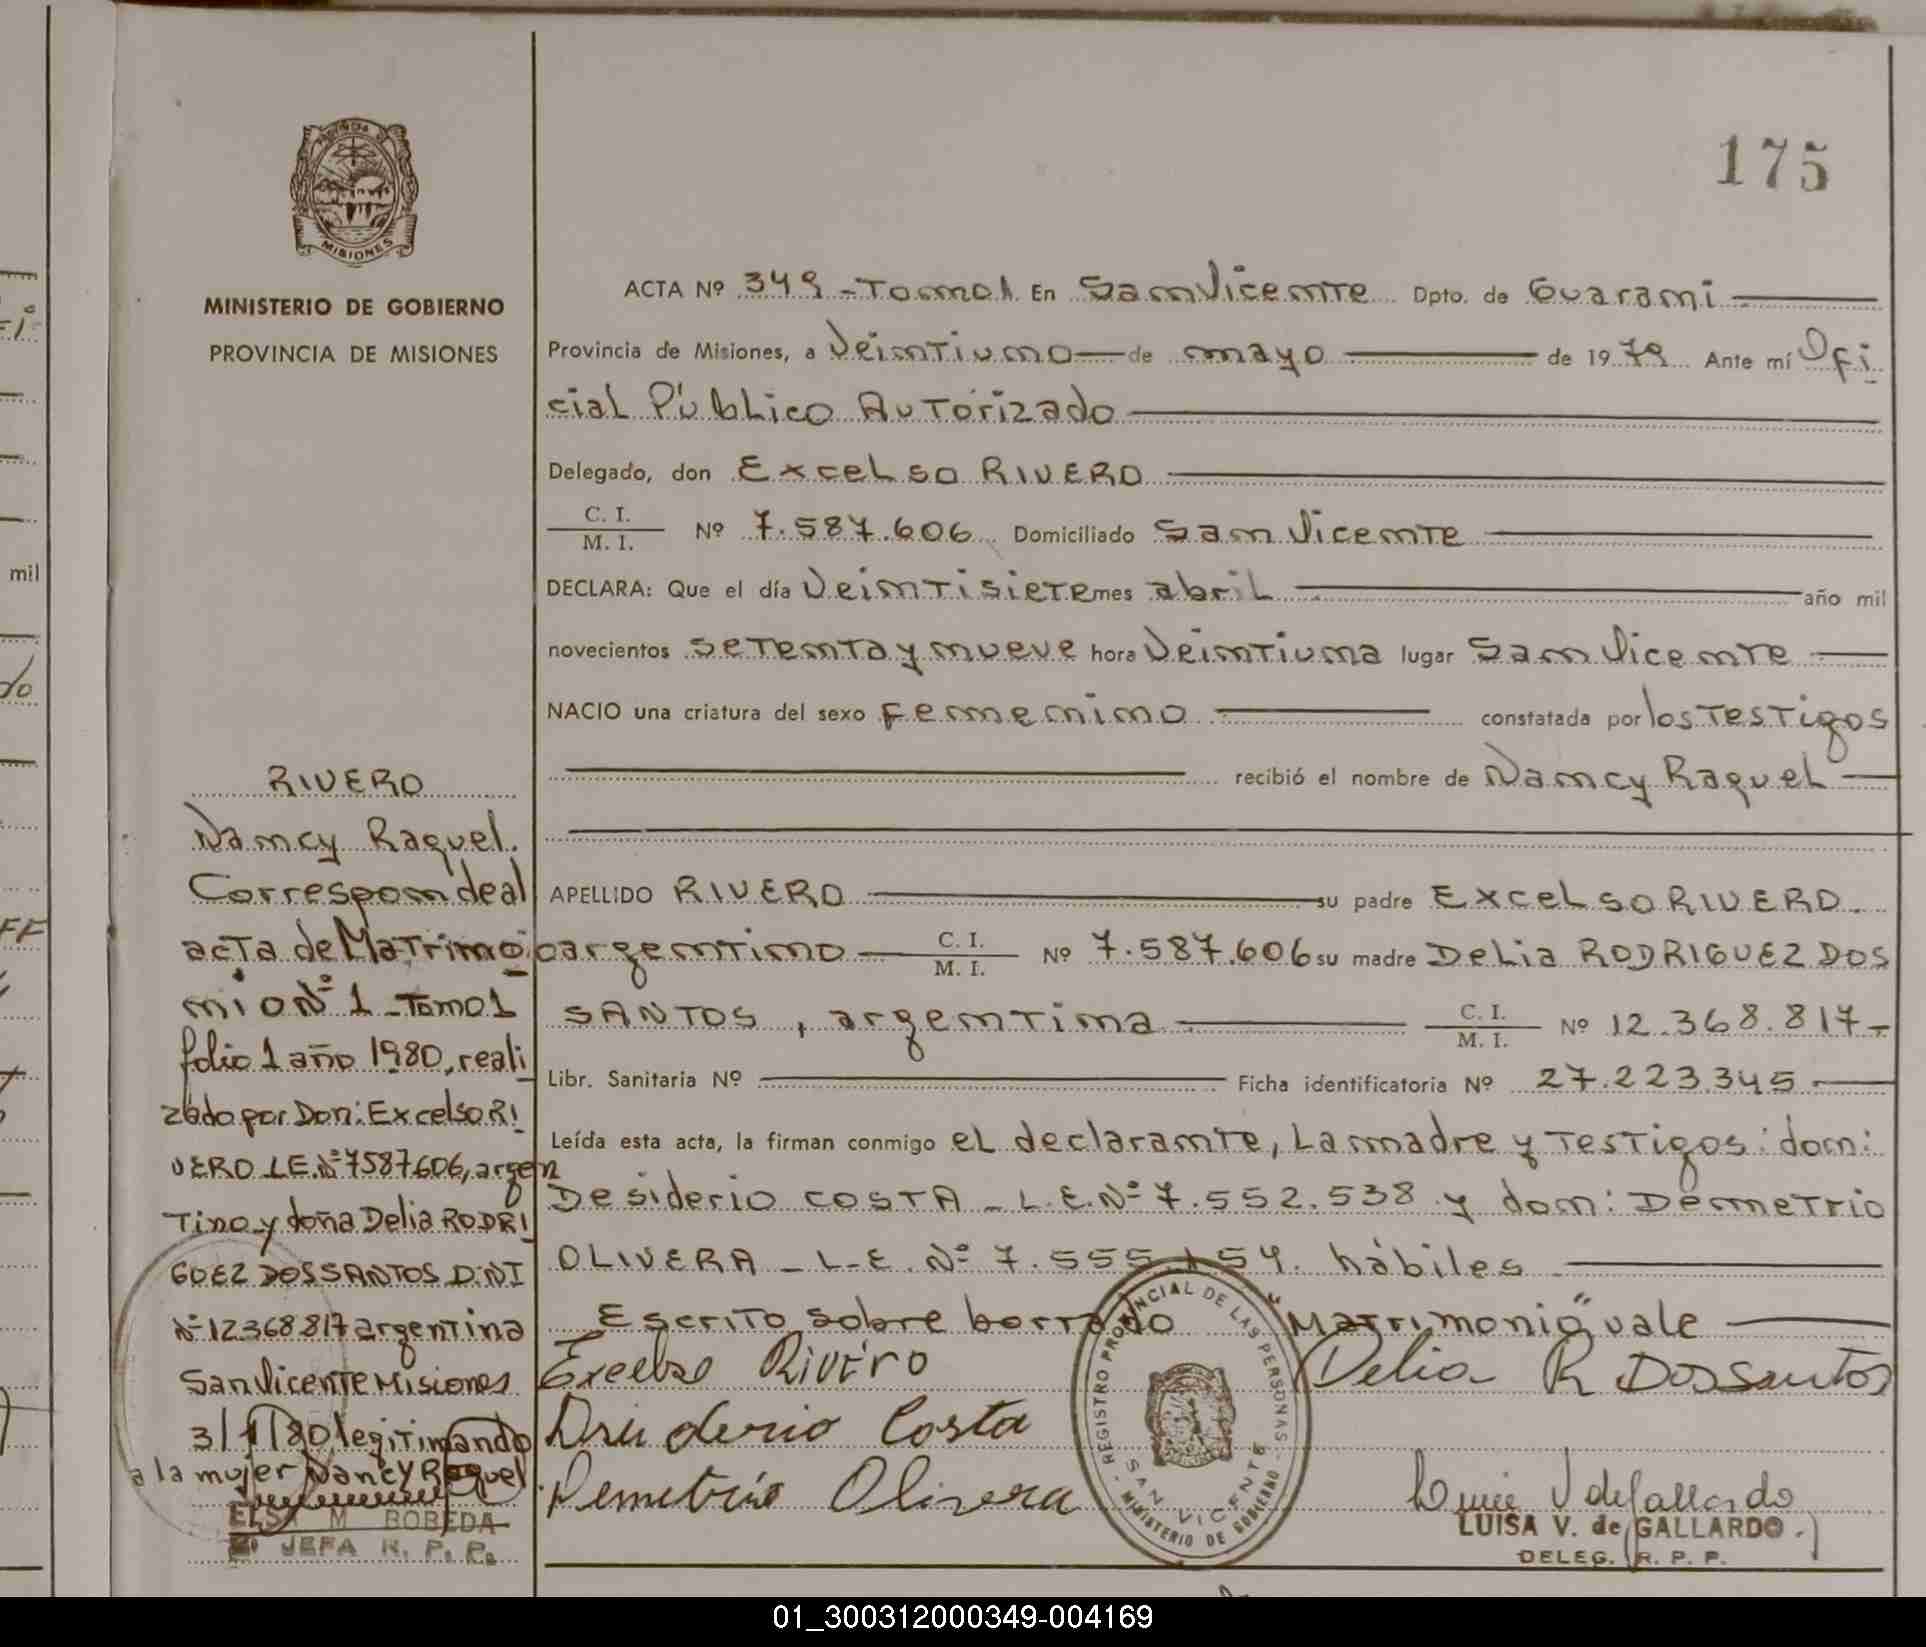 175
PROVINCIA DE
MISIONES
MINISTERIO DE GOBIERNO
PROVINCIA DE MISIONES
ACTA Nº 349 - Tomo 1. En San Vicente Dpto. de Guarani
Provincia de Misiones, a Veintiuno de mayo de 1979 Ante mí Ofi
cial Público Autorizado
Delegado, don Excelso RIVERO
C. I.
M. I. Nº 7.587.606 Domiciliado San Vicente
DECLARA: Que el día Veintisiete mes abril año mil
novecientos setenta y nueve hora Veintiuna lugar San Vicente
NACIO una criatura del sexo femenino constatada por los Testigos
recibió el nombre de Nancy Raquel
APELLIDO RIVERO su padre Excelso RIVERO.
argentino C. I.
M. I. Nº 7.587.606 su madre Delia RODRIGUEZ DOS
SANTOS, argentina C. I.
M. I. Nº 12.368.817-
Libr. Sanitaria Nº Ficha identificatoria Nº 27.223.345.
Leída esta acta, la firman conmigo el declarante, La madre y Testigos: don:
Desiderio COSTA - L.E. Nº 7.552.538 y don: Demetrio
OLIVERA - L.E. Nº 7.555.154. hábiles
Escrito sobre borrado "Matrimonio" vale
Excelso Rivero
Delia R Dos Santos
Desiderio Costa
Demetrio Olivera
Luisa V de Gallardo
LUISA V. de GALLARDO.
DELEG. R. P. P.
REGISTRO PROVINCIAL DE LAS PERSONAS
SAN VICENTE
MINISTERIO DE GOBIERNO
RIVERO
Nancy Raquel.
Corresponde al
acta de Matrimo
nio Nº 1 - Tomo 1
folio 1 año 1980, reali
zado por Don: Excelso RI
VERO L.E. Nº 7587606, argen
tino y doña Delia RODRI
GUEZ DOS SANTOS D.N.I
Nº 12368817 argentina
San Vicente Misiones
3/1/80 legitimando
a la mujer Nancy Raquel
ELSA M BOBEDA
JEFA R. P. P.
mil
do
FF
01_300312000349-004169